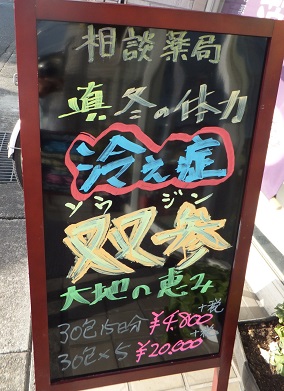 相談薬局
真冬の体力
冷え症
ソウジン
双参
大地の恵み
30包15日分 ¥4,800 +税
30包×5 ¥20,000 +税